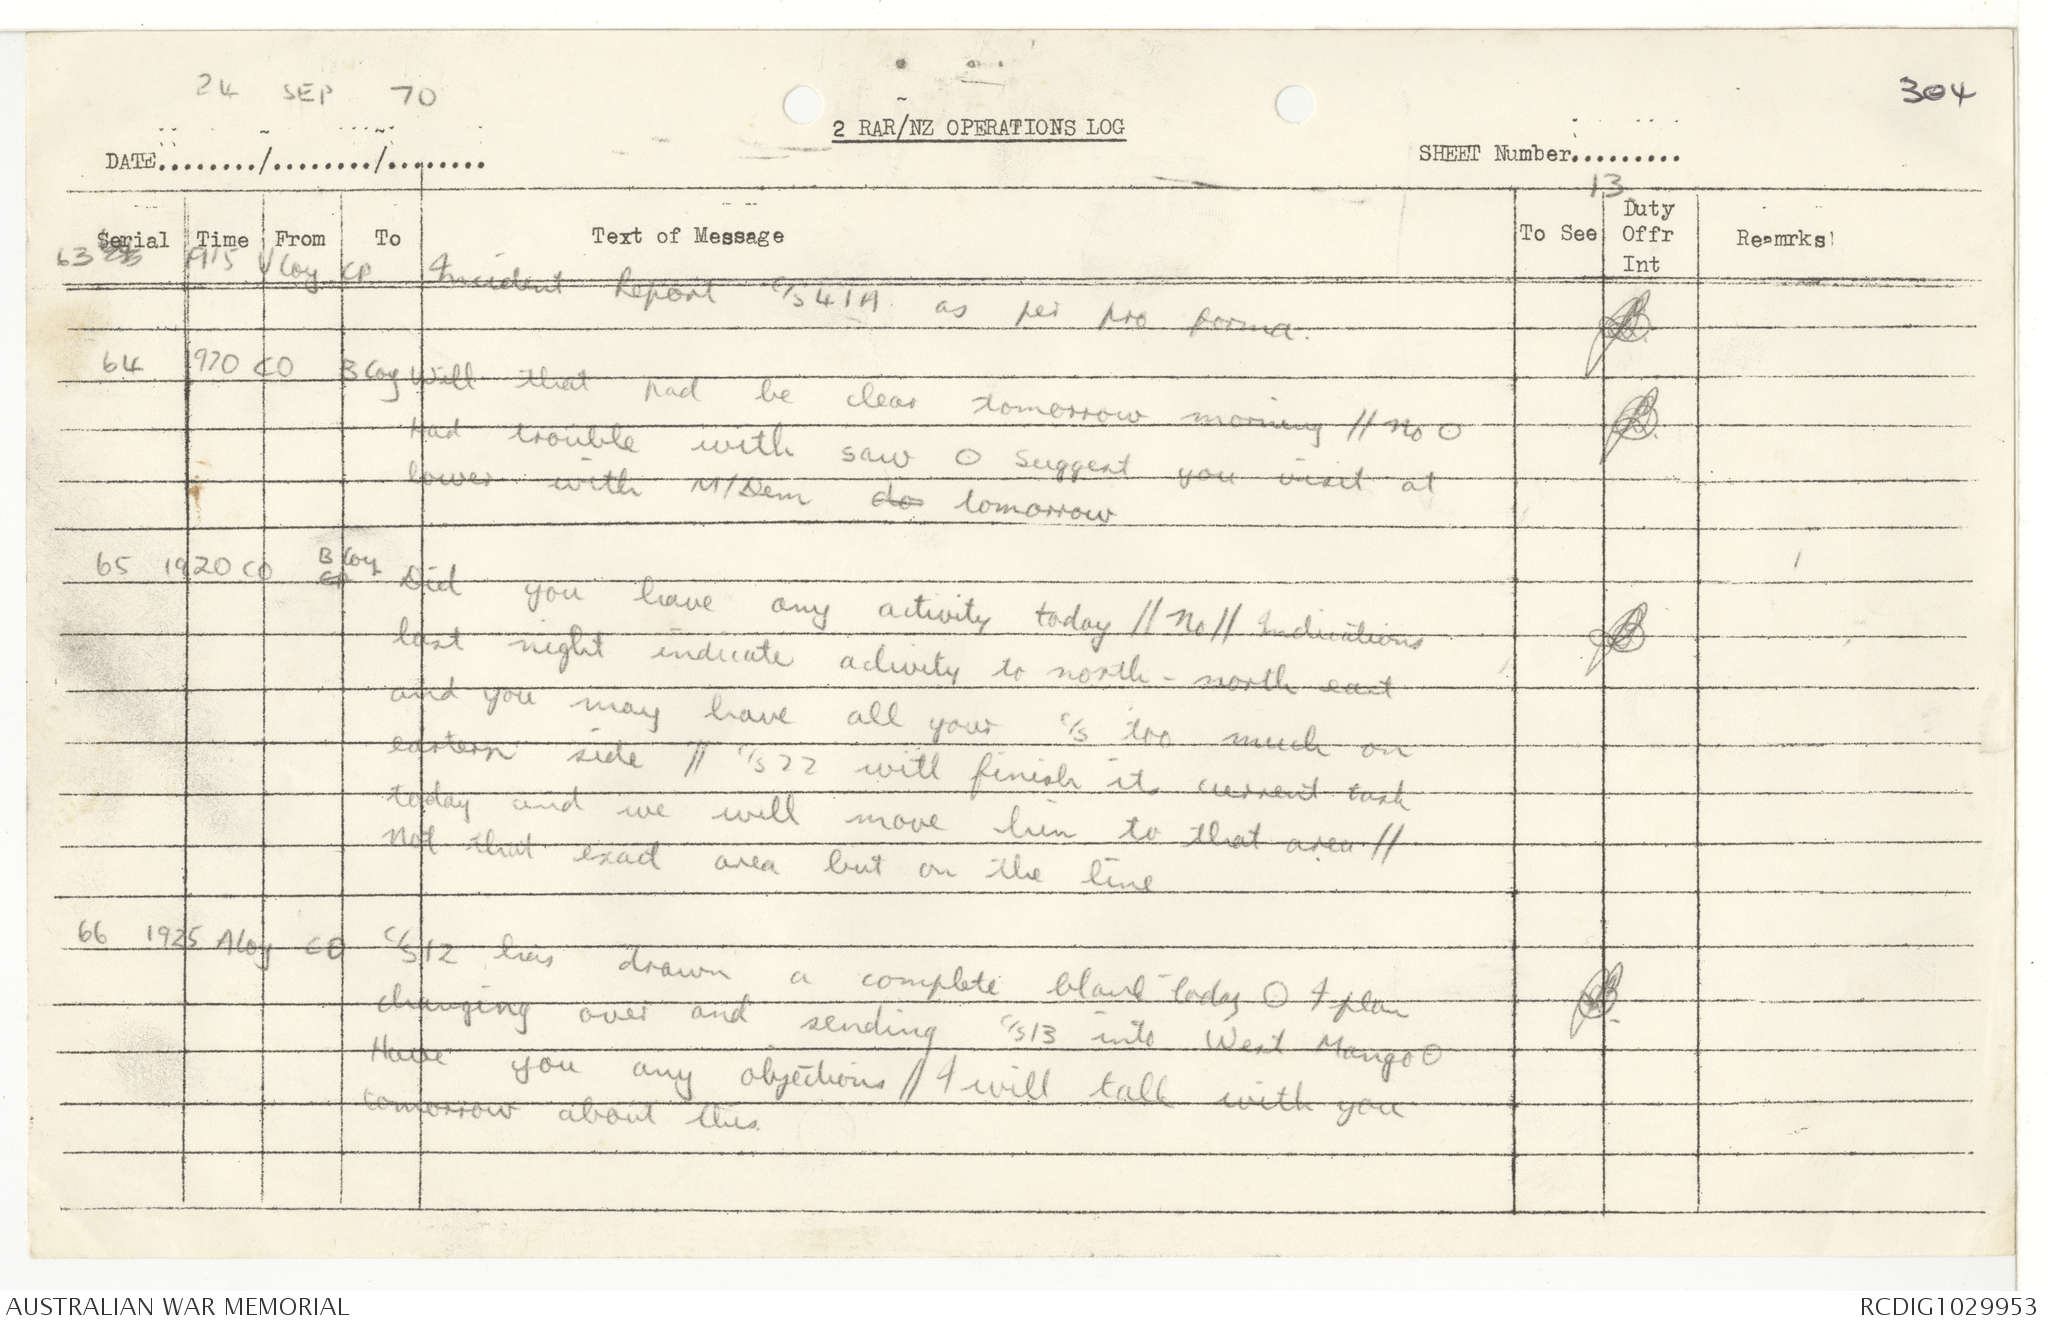 24 SEP 70
304
2 RAR/NZ OPERATIONS LOG
DATE......../......../........
SHEET Number.........
13
Serial Time From To Text of Message To See Duty Offr Int Reamrks
63 1915 V Coy CP Incident Report C/S 41A as per pro forma.
64 1920 CO B Coy Will that pad be clear tomorrow morning // No O
Had trouble with saw O Suggest you visit at
lower with M/Dem do tomorrow
65 1920 CO B Coy CP Did you have any activity today // No // Indications
last night indicate activity to north - north east
and you may have all your C/S too much on
eastern side // C/S 22 will finish its current task
today and we will move him to that area //
Not that exact area but on the line
66 1925 A Coy CO C/S 12 has drawn a complete blank today O I plan
changing over and sending C/S 13 into West Mango O
Have you any objections // I will talk with you
tomorrow about this.
AUSTRALIAN WAR MEMORIAL
RCDIG1029953